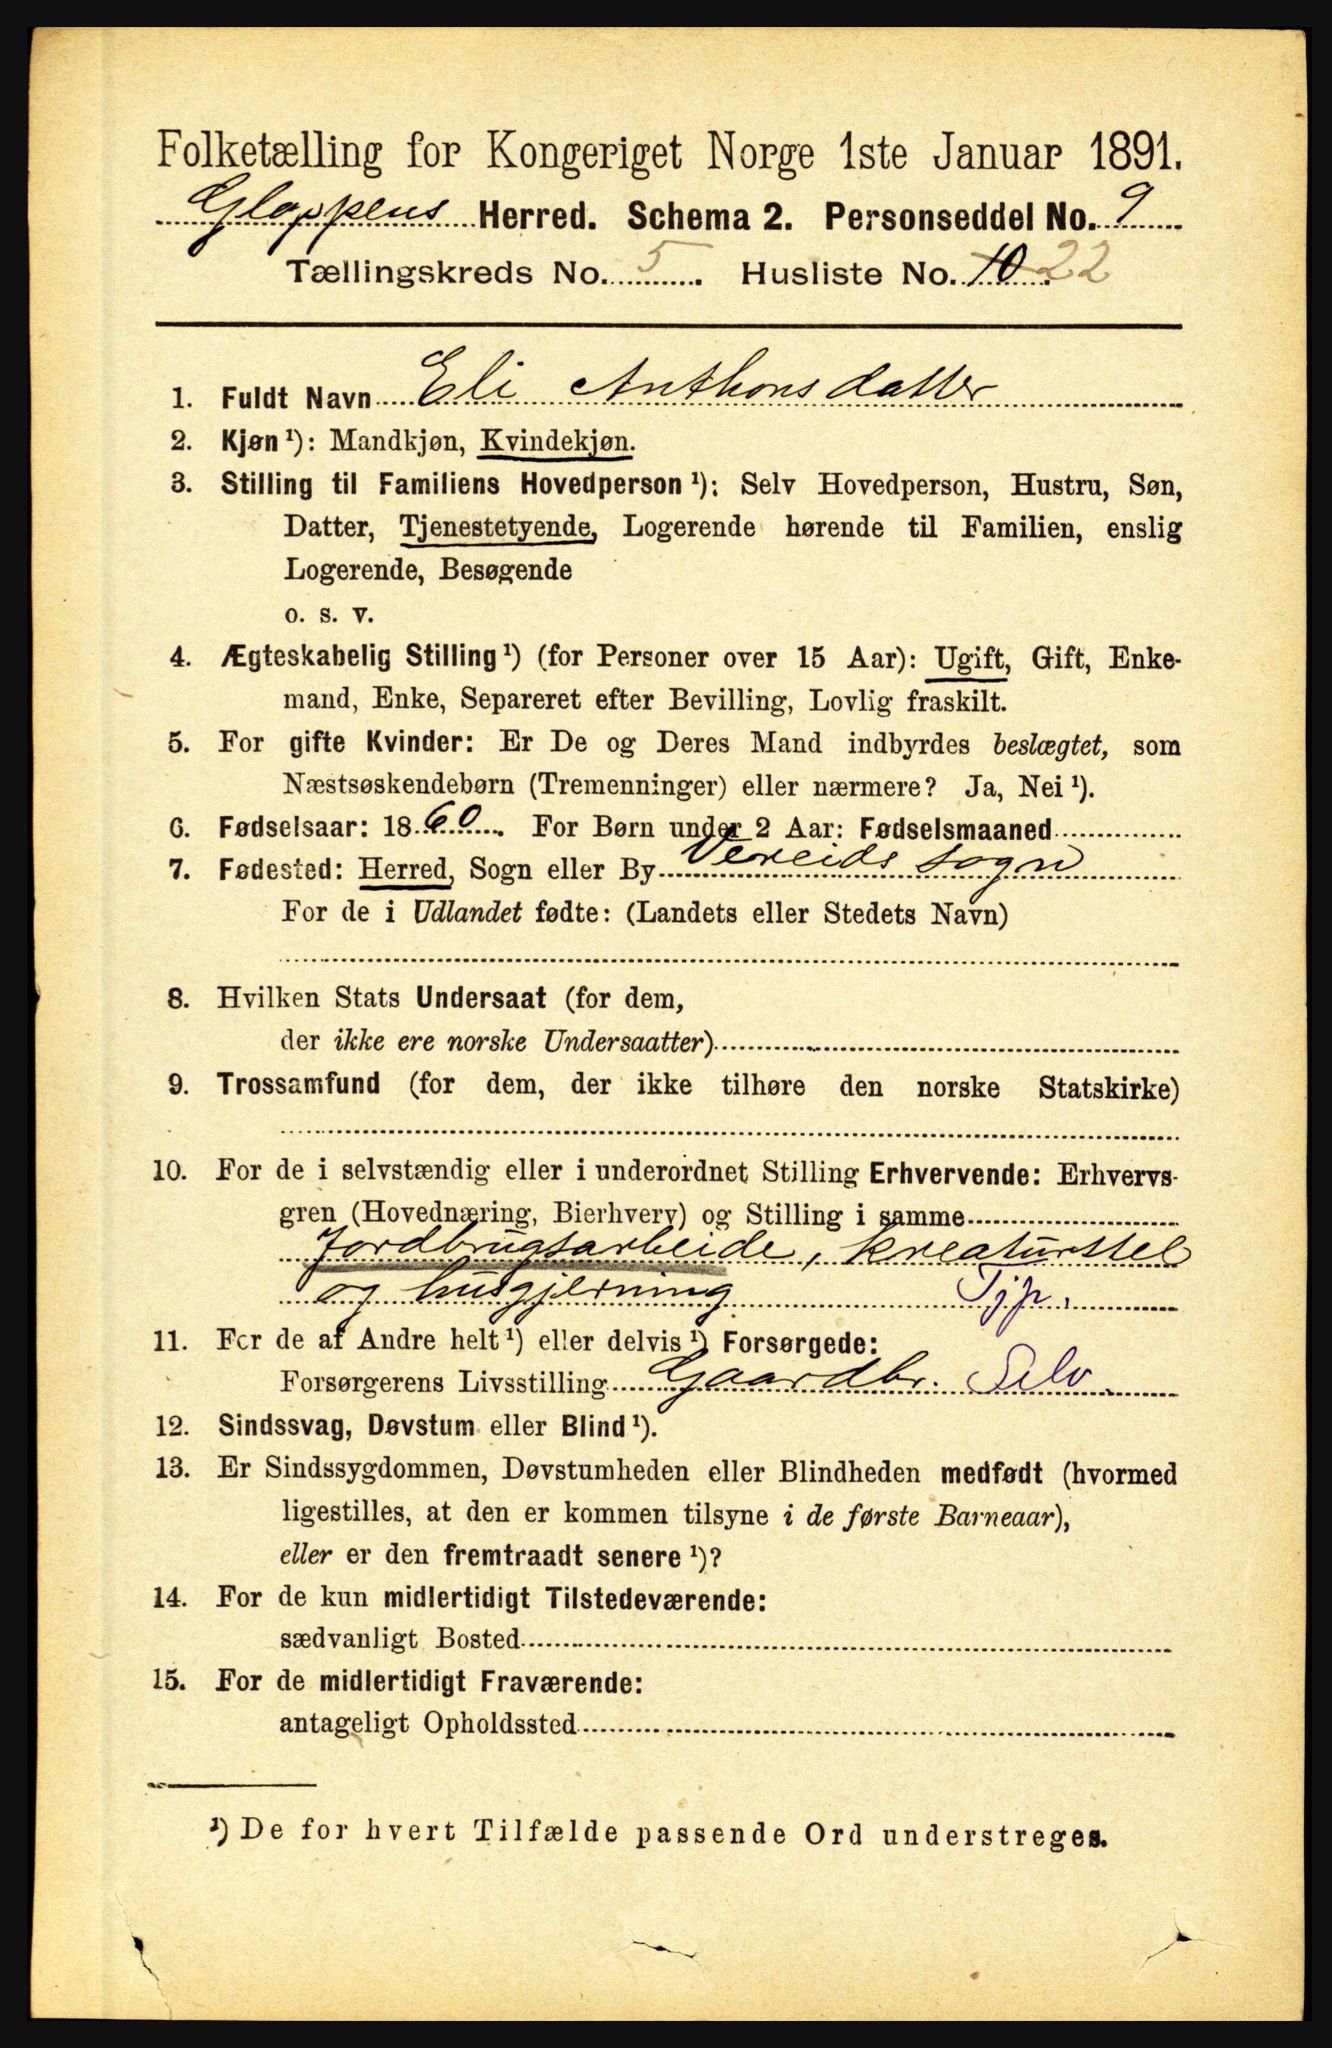 Folketælling for Kongeriget Norge 1ste Januar 1891.
Gloppens Herred. Schema 2. Personseddel No. 9
Tællingskreds No. 5. Husliste No. 10 22
1. Fuldt Navn Eli Anthonsdatter
2. Kjøn ¹): Mandkjøn, Kvindekjøn.
3. Stilling til Familiens Hovedperson ¹): Selv Hovedperson, Hustru, Søn,
Datter, Tjenestetyende, Logerende hørende til Familien, enslig
Logerende, Besøgende
o. s. v.
4. Ægteskabelig Stilling ¹) (for Personer over 15 Aar): Ugift, Gift, Enke-
mand, Enke, Separeret efter Bevilling, Lovlig fraskilt.
5. For gifte Kvinder: Er De og Deres Mand indbyrdes beslægtet, som
Næstsøskendebørn (Tremenninger) eller nærmere? Ja, Nei ¹).
6. Fødselsaar: 1860. For Børn under 2 Aar: Fødselsmaaned
7. Fødested: Herred, Sogn eller By Vereids sogn
For de i Udlandet fødte: (Landets eller Stedets Navn)
8. Hvilken Stats Undersaat (for dem,
der ikke ere norske Undersaatter)
9. Trossamfund (for dem, der ikke tilhøre den norske Statskirke)
10. For de i selvstændig eller i underordnet Stilling Erhvervende: Erhvervs-
gren (Hovednæring, Bierhverv) og Stilling i samme
Jordbrugsarbeide, kreaturstel
og husgjerning Tjp.
11. For de af Andre helt ¹) eller delvis ¹) Forsørgede:
Forsørgerens Livsstilling Gaardbr. Selv.
12. Sindssvag, Døvstum eller Blind ¹).
13. Er Sindssygdommen, Døvstumheden eller Blindheden medfødt (hvormed
ligestilles, at den er kommen tilsyne i de første Barneaar),
eller er den fremtraadt senere ¹)?
14. For de kun midlertidigt Tilstedeværende:
sædvanligt Bosted
15. For de midlertidigt Fraværende:
antageligt Opholdssted
¹) De for hvert Tilfælde passende Ord understreges.